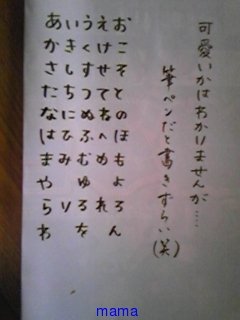 可愛いかはわかりませんが....
筆ペンだと書きずらい(笑)
おこそとのほもよろん
えけせてねへめ れ
うくすつぬふむゆるを
いきしちにひみ り
あかさたなはまやらわ
mama